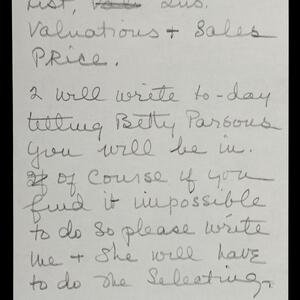 List, Ins.
Valuations + Sales
Price.
I will write to-day
telling Betty Parsons
you will be in.
If of course if you
find it impossible
to do so please write
me + she will have
to do the selecting.